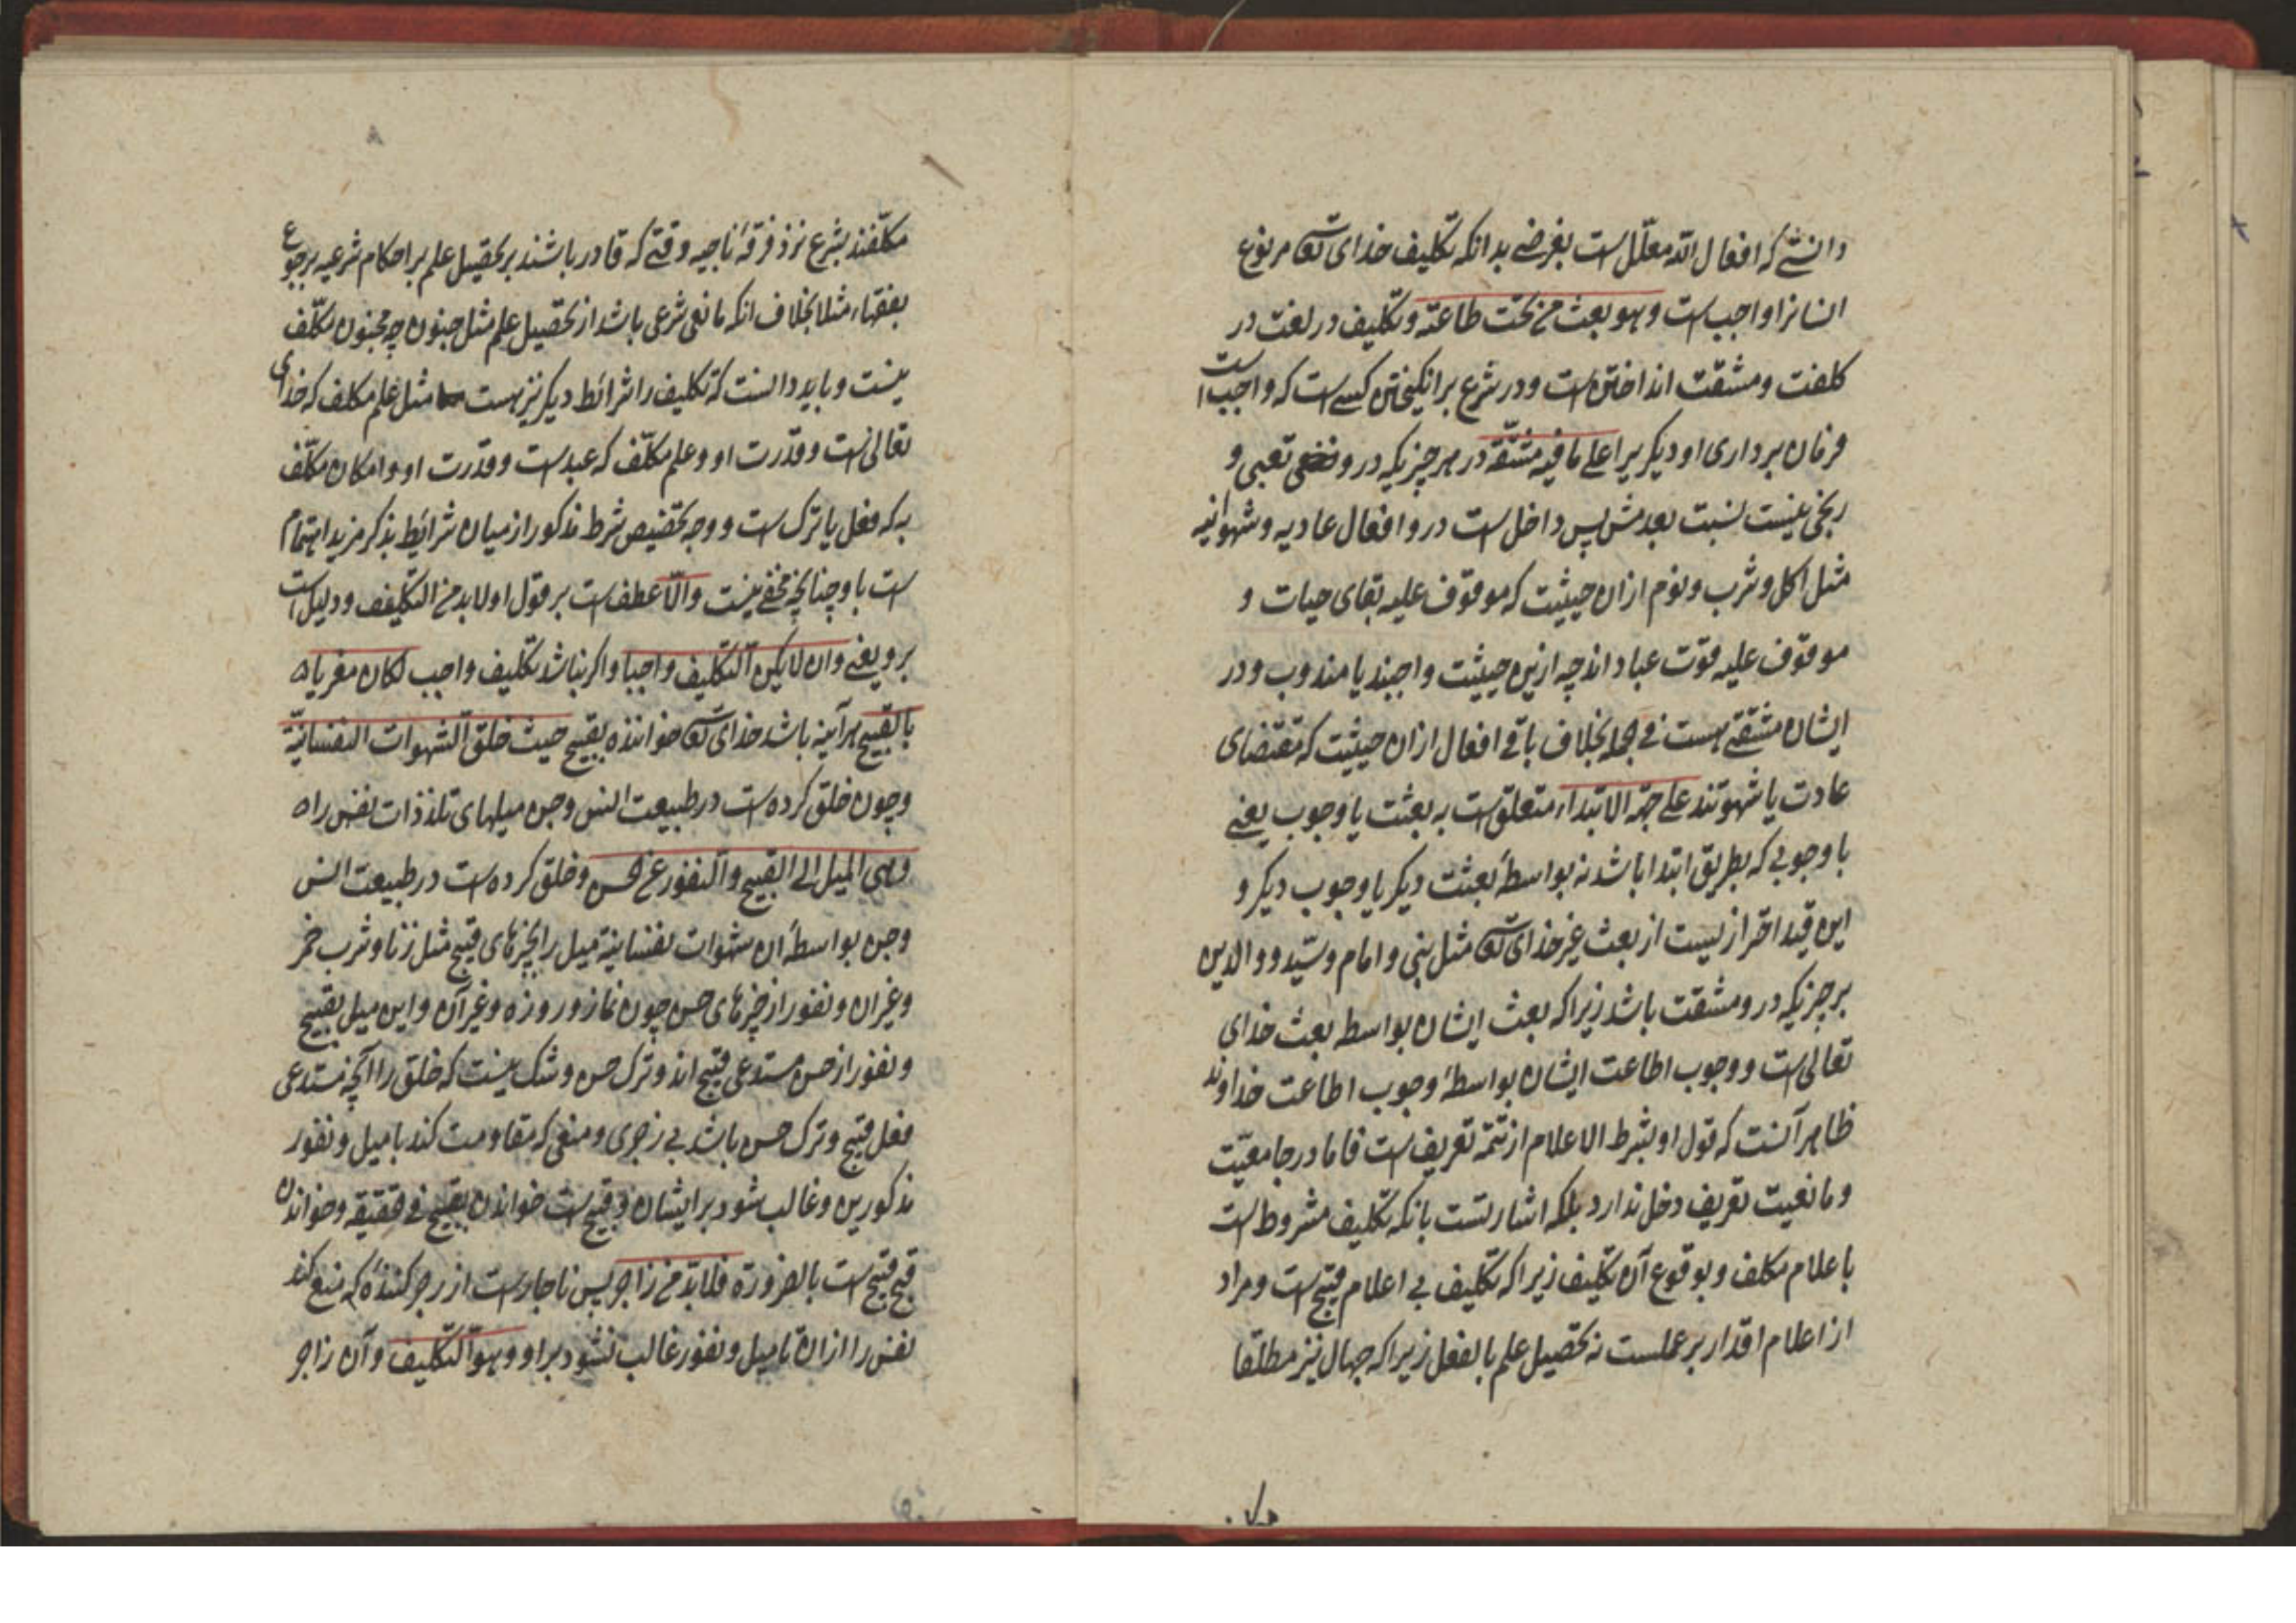 دانستی که افعال الله معلّل است بغرضی بدانکه تکلیف خدای تعه مر نوع
انسانرا واجب است وهو بعث من تجب طاعته و تکلیف در لغت در
کلفت و مشقت انداختن است و در شرع برانکیختن کسی است که واجب است
فرمان برداری او دیکریرا علی ما فیه مشقّة در هر چیزیکه درو تعبی و
رنجی نیست نسبت بعدمش پس داخل است درو افعال عادیه و شهوانیه
مثل اکل و شرب و نوم ازان حیثیت که موقوف علیه بقای حیات و
موقوف علیه قوّت عباد اند چه ازین حیثیت واجبند یا مندوب و در
ایشان مشقتی هست فی الجمله بخلاف باقی افعال ازان حیثیت که مقتضای
عادت یا شهوتند علی جهة الابتداء متعلق است به بعثت یا وجوب یعنی
با وجوبی که بطریق ابتدا باشد نه بواسطهٔ بعثت دیکر یا وجوب دیکر و
این قید احترازیست از بعث غیر خدای تعه مثل نبی و امام و سیّد و والدین
بر چیزیکه درو مشقت باشد زیراکه بعث ایشان بواسطه بعث خدای
تعالی است و وجوب اطاعت ایشان بواسطهٔ وجوب اطاعت خداوند
ظاهر آنست که قول او بشرط الاعلام از تتمّهٔ تعریف است فاما در جامعیّت
و مانعیت تعریف دخل ندارد بلکه اشارتست بانکه تکلیف مشروط است
باعلام مکلف و بوقوع آن تکلیف زیراکه تکلیف بی اعلام قبیح است و مراد
از اعلام اقدار بر علمست نه تحصیل علم بالفعل زیراکه جهال نیز مطلقا
مکلّفند بشرع نزد فرقهٔ ناجیه وقتی که قادر باشند بر تحصیل علم بر احکام شرعیه برجوع
بفقهاء مثلا بخلاف انکه مانعی شرعی باشد از تحصیل علم مثل جنون چه مجنون مکلّف
نیست و باید دانست که تکلیف را شرائط دیکر نیز هست مثل علم مکلف که خدای
تعالی است و قدرت او و علم مکلّف که عبد است و قدرت او و امکان مکلّف
به که فعل یا ترک است و وجه تخصیص شرط مذکور از میان شرائط بذکر مزید اهتمام
است باو چنانچه مخفی نیست والّا عطف است بر قول او لابد من التکلیف و دلیل است
برو یعنی وان لا یکن التکلیف واجبا و اکر نباشد تکلیف واجب لکان مغریا
بالقبیح هر آینه باشد خدای تعه خواننده بقبیح حیث خلق الشهوات النفسانیّة
و چون خلق کرده است در طبیعت انس و جن میلهای تلذذات نفس را
وهی المیل الی القبیح والنفور عن الحسن و خلق کرده است در طبیعت انس
و جن بواسطهٔ ان شهوات نفسانیة میل را بچیزهای قبیح مثل زنا و شرب خمر
و غیر ان و نفور از چیزهای حسن چون نماز و روزه و غیر آن و این میل بقبیح
و نفور از حسن مستدعی قبیح اند و ترک حسن و شک نیست که خلق را آنچه مستدعی
فعل قبیح و ترک حسن باشد بی زجری و منعی که مقاومت کند با میل و نفور
مذکورین و غالب شود بر ایشان قبیح است خواندن بقبیح فی الحقیقة و خواندن
قبیح قبیح است بالضرورة فلابدّ من زاجر پس ناچار است از زجر کنندهٔ که منع کند
نفس را ازان تا میل و نفور غالب نشود بر او وهو التکلیف و آن زاجر